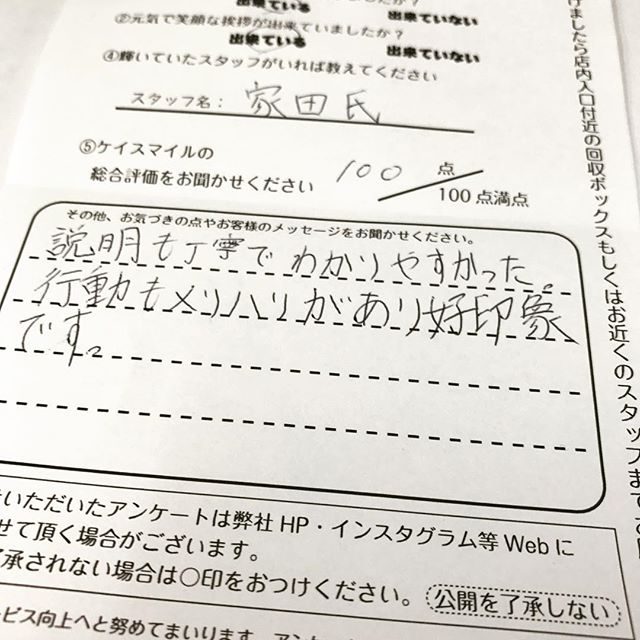 出来ている 出来ていない
②元気で笑顔な挨拶が出来ていましたか？
出来ている 出来ていない
④輝いていたスタッフがいれば教えてください
スタッフ名： 家田氏
⑤ケイスマイルの
総合評価をお聞かせください 100 点
100点満点
その他、お気づきの点やお客様のメッセージをお聞かせください。
説明も丁寧でわかりやすかった。
行動もメリハリがあり好印象
です。
いただいたアンケートは弊社HP・インスタグラム等Webに
せて頂く場合がございます。
了承されない場合は〇印をおつけください。 公開を了承しない
ービス向上へと努めてまいります。アン
けましたら店内入口付近の回収ボックスもしくはお近くのスタッフまで